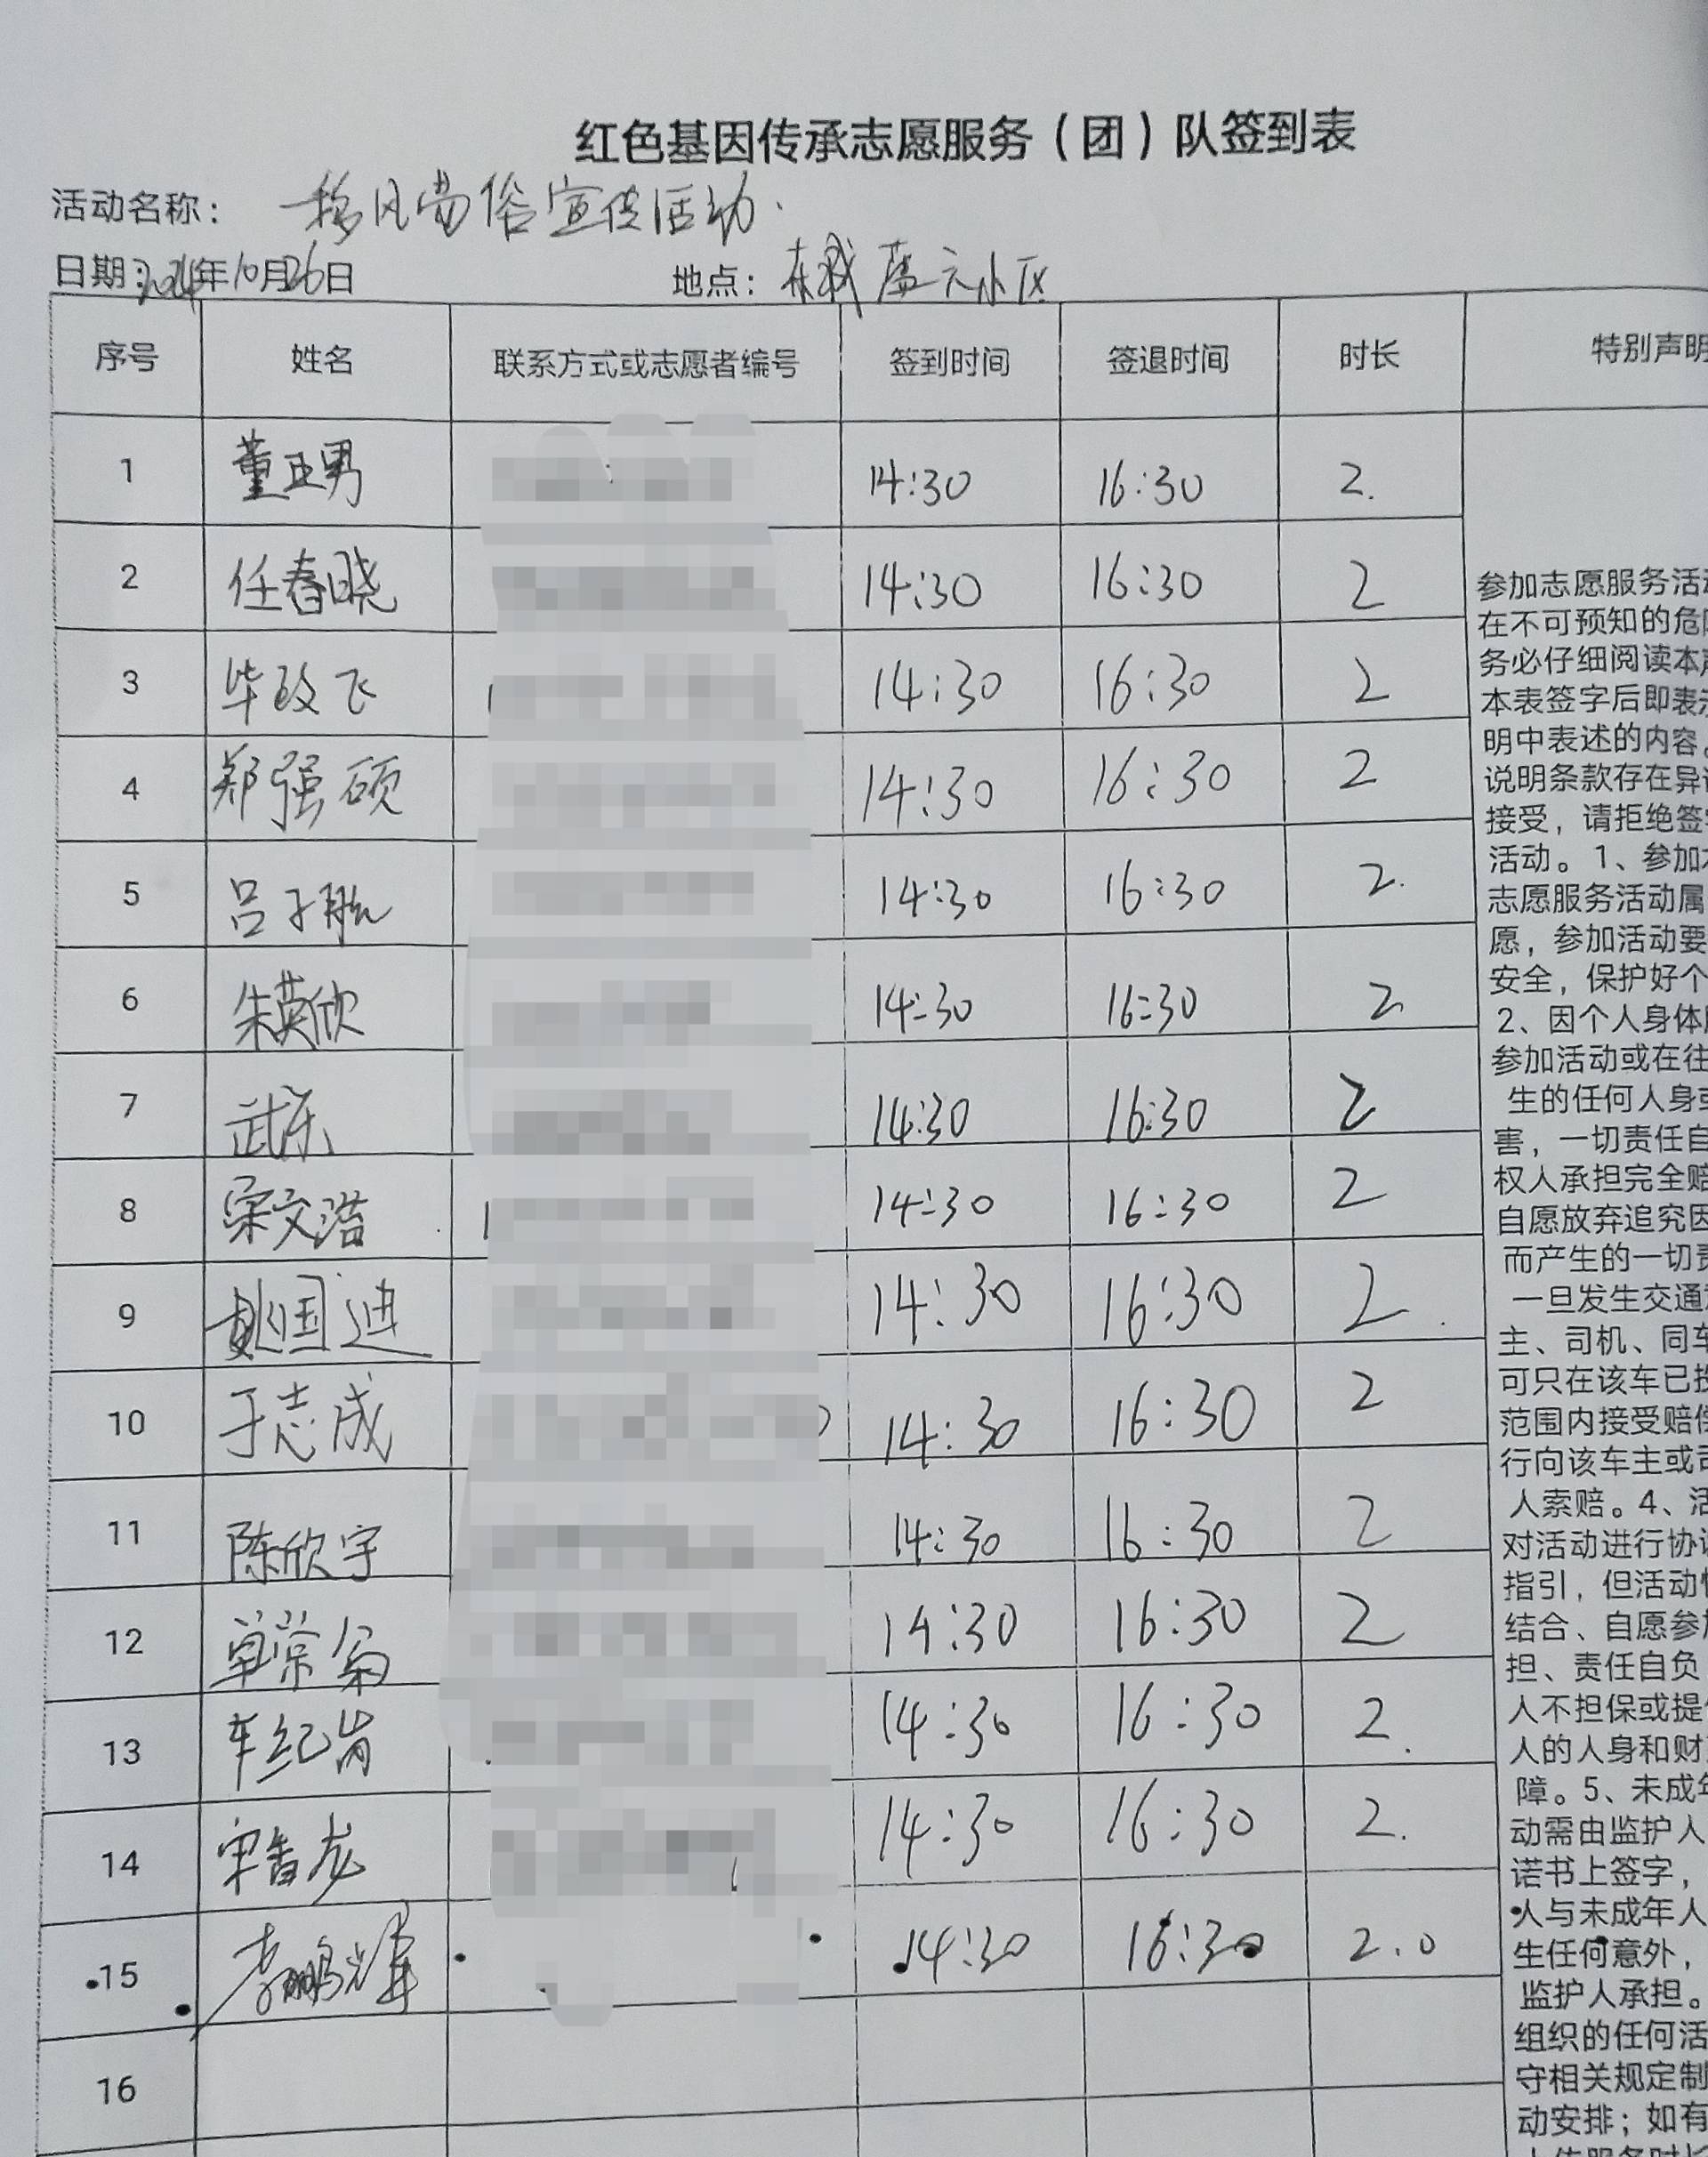 红色基因传承志愿服务（团）队签到表
活动名称： 移风易俗宣传活动.
日期：2024年10月26日 地点： 东城蓝天小区
序号 姓名 联系方式或志愿者编号 签到时间 签退时间 时长 特别声明
1 董正男 14:30 16:30 2.
2 任春晓 14:30 16:30 2
3 毕政飞 14:30 16:30 2
4 郑强硕 14:30 16:30 2
5 吕子航 14:30 16:30 2.
6 朱英欣 14:30 16:30 2
7 武乐 14:30 16:30 2
8 宋文浩 14:30 16:30 2
9 姚国进 14:30 16:30 2
10 于志成 14:30 16:30 2
11 陈欣宇 14:30 16:30 2
12 14:30 16:30 2
13 车纪岗 14:30 16:30 2.
14 宋香龙 14:30 16:30 2.
15 李鹏辉 14:30 16:30 2.0
16
参加志愿服务活动
在不可预知的危险
务必仔细阅读本声
本表签字后即表示
明中表述的内容。
说明条款存在异议
接受，请拒绝签字
活动。1、参加本
志愿服务活动属
愿，参加活动要
安全，保护好个
2、因个人身体
参加活动或在往
生的任何人身或
害，一切责任自
权人承担完全赔
自愿放弃追究因
而产生的一切责
一旦发生交通意
主、司机、同车
可只在该车已投
范围内接受赔偿
行向该车主或司
人索赔。4、活
对活动进行协调
指引，但活动性
结合、自愿参加
担、责任自负
人不担保或提供
人的人身和财产
障。5、未成年
动需由监护人
诺书上签字，
人与未成年人
生任何意外，
监护人承担。
组织的任何活
守相关规定制
动安排；如有